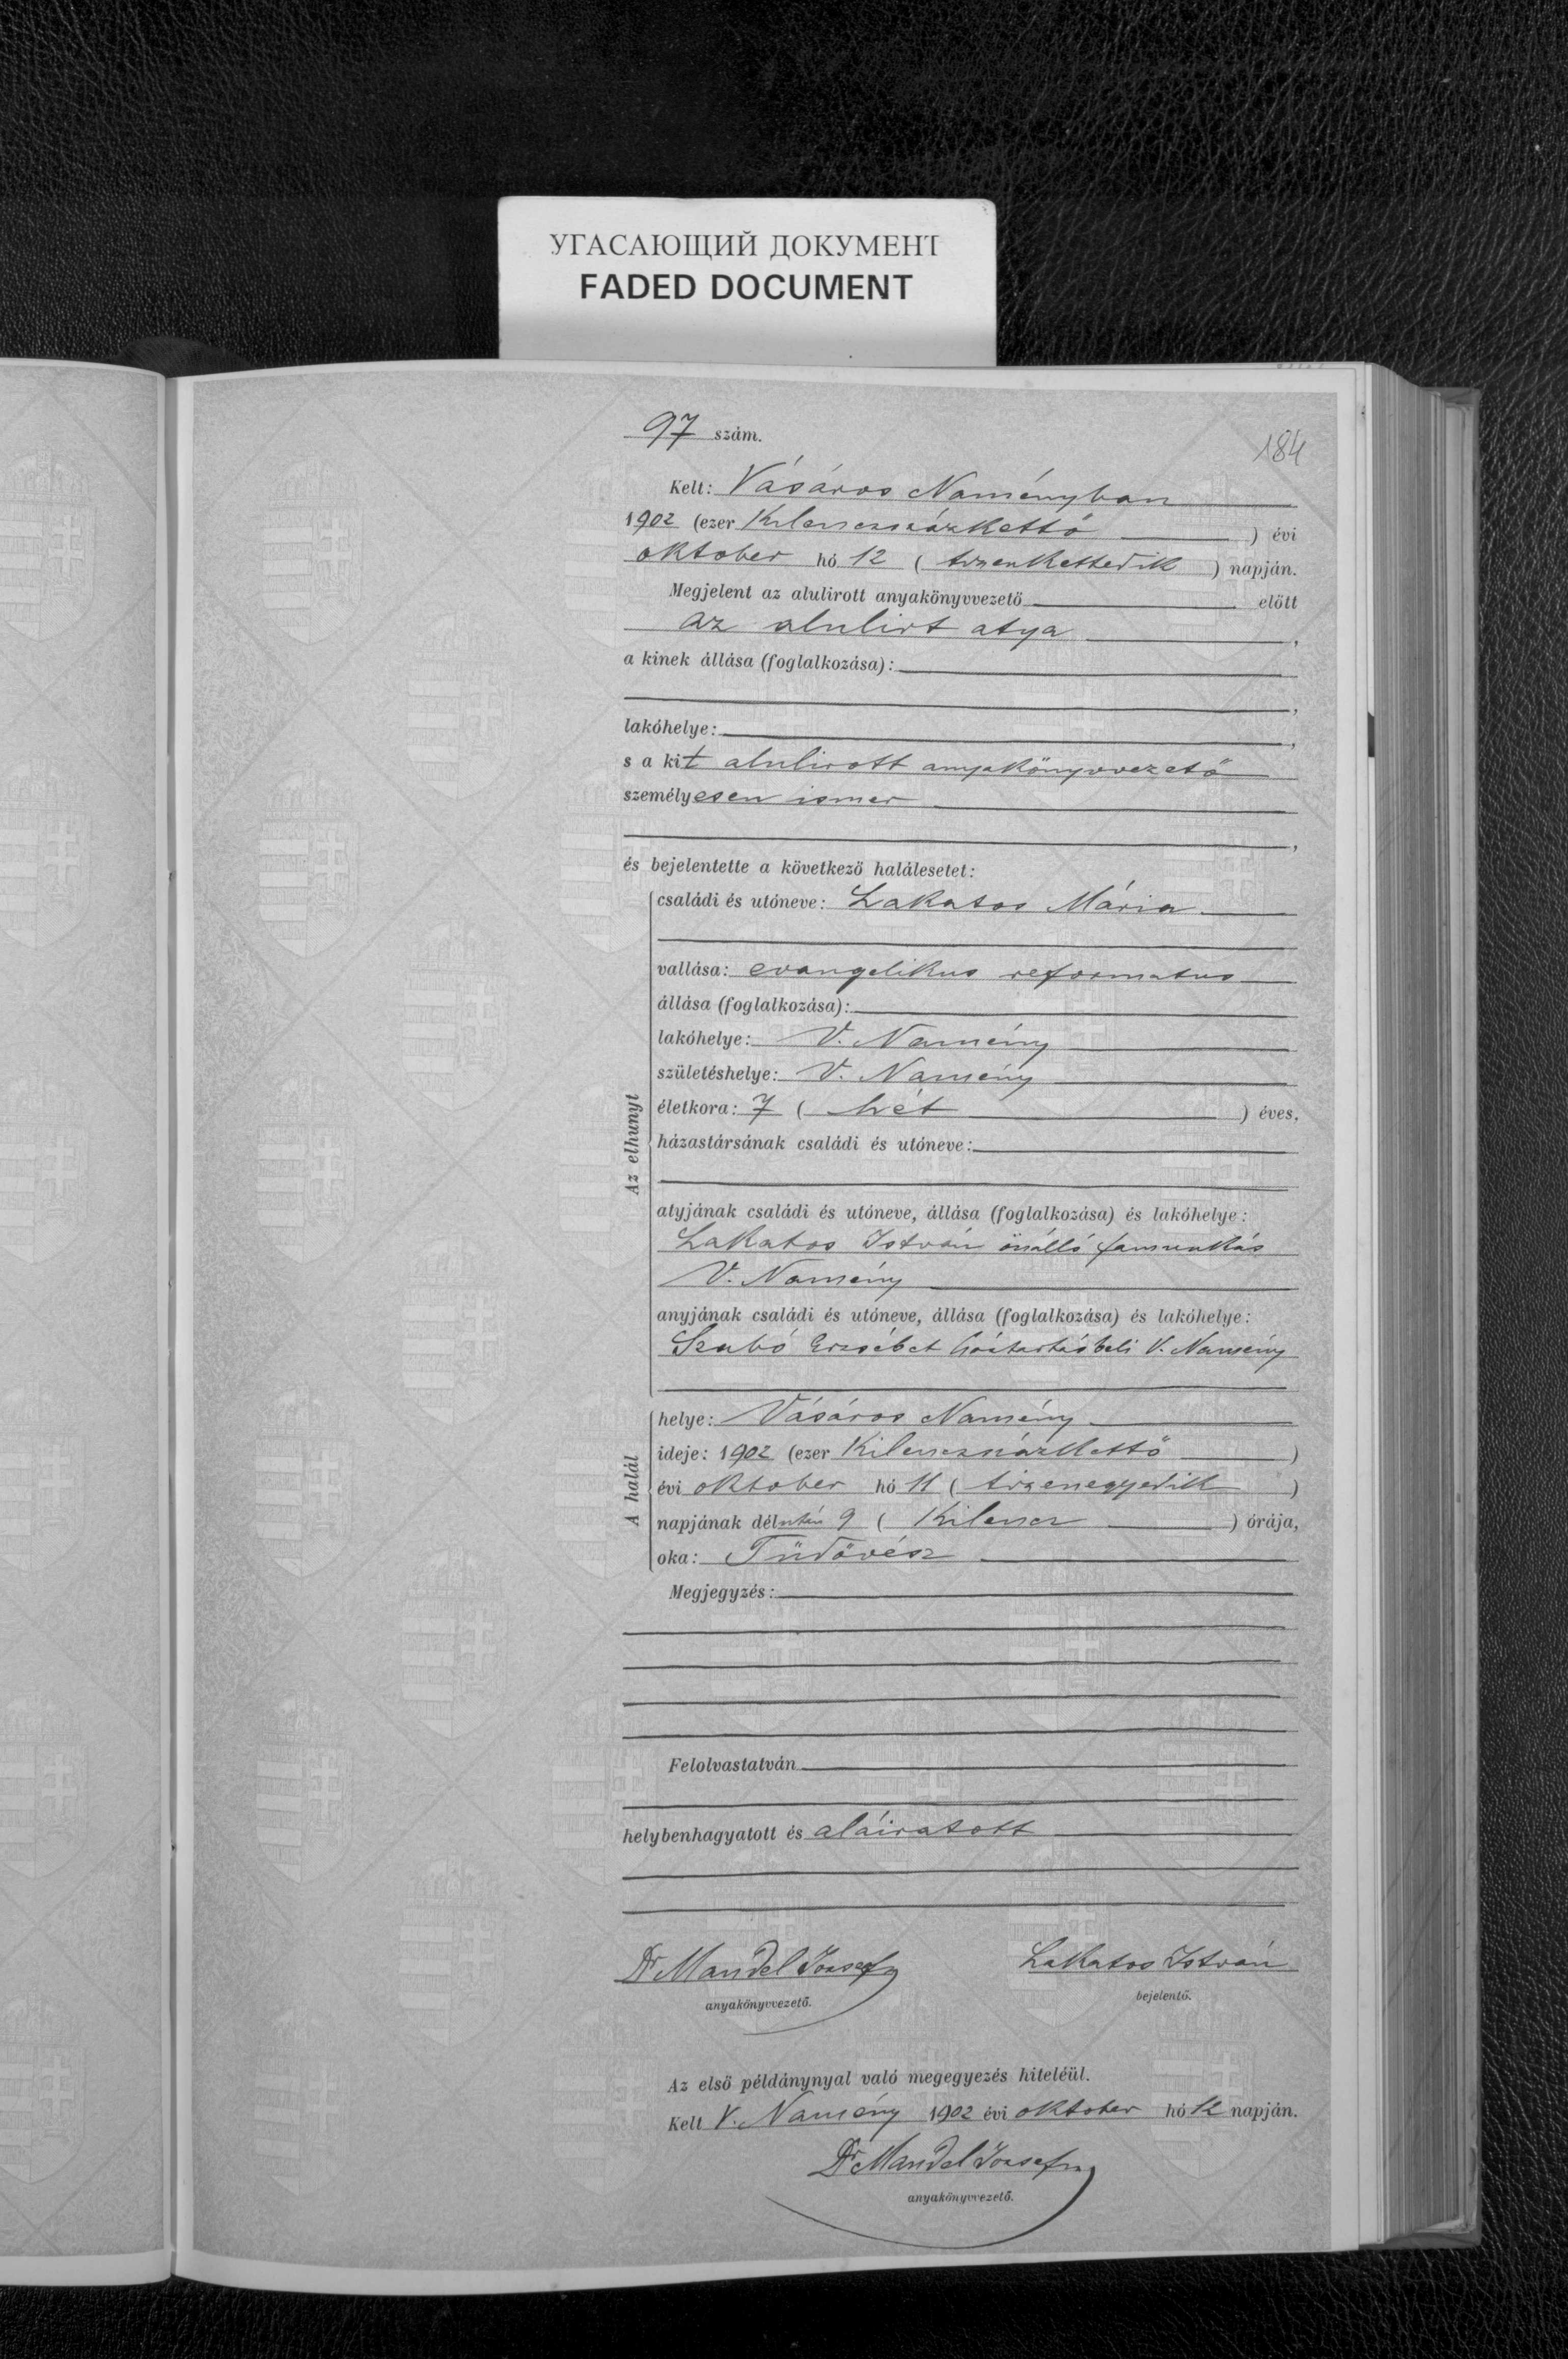 УГАСАЮЩИЙ ДОКУМЕНТ
FADED DOCUMENT
97 szám.
184
Kelt: Vásáros Naményban
1902 (ezer Kilenczszázkettő ) évi
oktober hó 12 ( tizenkettedik ) napján.
Megjelent az alulirott anyakönyvvezető előtt
az alulirt atya ,
a kinek állása (foglalkozása):
,
lakóhelye: ,
s a kit alulirott anyakönyvvezető
személyesen ismer
,
és bejelentette a következő halálesetet:
Az elhunyt
családi és utóneve: Lakatos Mária
vallása: evangelikus reformatus
állása (foglalkozása):
lakóhelye: V. Namény
születéshelye: V. Namény
életkora: 7 ( hét ) éves,
házastársának családi és utóneve:
atyjának családi és utóneve, állása (foglalkozása) és lakóhelye:
Lakatos István önálló famunkás
V. Namény
anyjának családi és utóneve, állása (foglalkozása) és lakóhelye:
Szabó Erzsébet háztartásbeli V. Namény
A halál
helye: Vásáros Namény
ideje: 1902 (ezer Kilenczszázkettő )
évi oktober hó 11 ( tizenegyedik )
napjának délután 9 ( Kilencz ) órája,
oka: Tüdővész
Megjegyzés:
Felolvastatván
helybenhagyatott és aláiratott
Dr Mandel József
Lakatos István
anyakönyvvezető.
bejelentő.
Az első példánynyal való megegyezés hiteléül.
Kelt V. Namény 1902 évi oktober hó 12 napján.
Dr Mandel József
anyakönyvvezető.